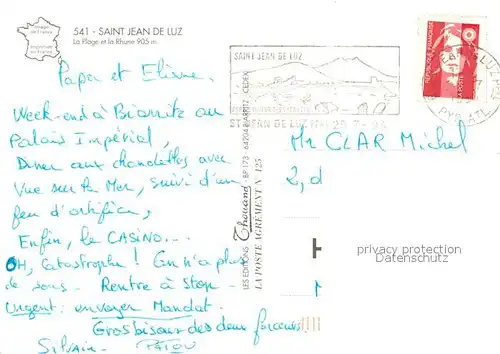 541 - SAINT JEAN DE LUZ
La Plage et la Rhune 905 m.
Papa et
Week-end à Biarritz au
Palais Impérial,
Diner aux chandelles avec
Vue sur la Mer, suivi d'un
feu d'artifice,
Enfin, le CASINO...
OH, Catastrophe ! On n'a plus
de sous. Rentre à Stop.
Urgent: envoyer Mandat.
Gros bisous des deux farceurs.
Sylvain - PATOU
LES EDITIONS Thouand - BP 173 - 64204 BIARRITZ - CEDEX
LA POSTE AGRÉMENT N° 125
SAINT JEAN DE LUZ
ST JEAN DE LUZ
REPUBLIQUE FRANÇAISE
LA POSTE
PYR-ATL
Mr CLAR Michel
2, d
privacy protection
Datenschutz